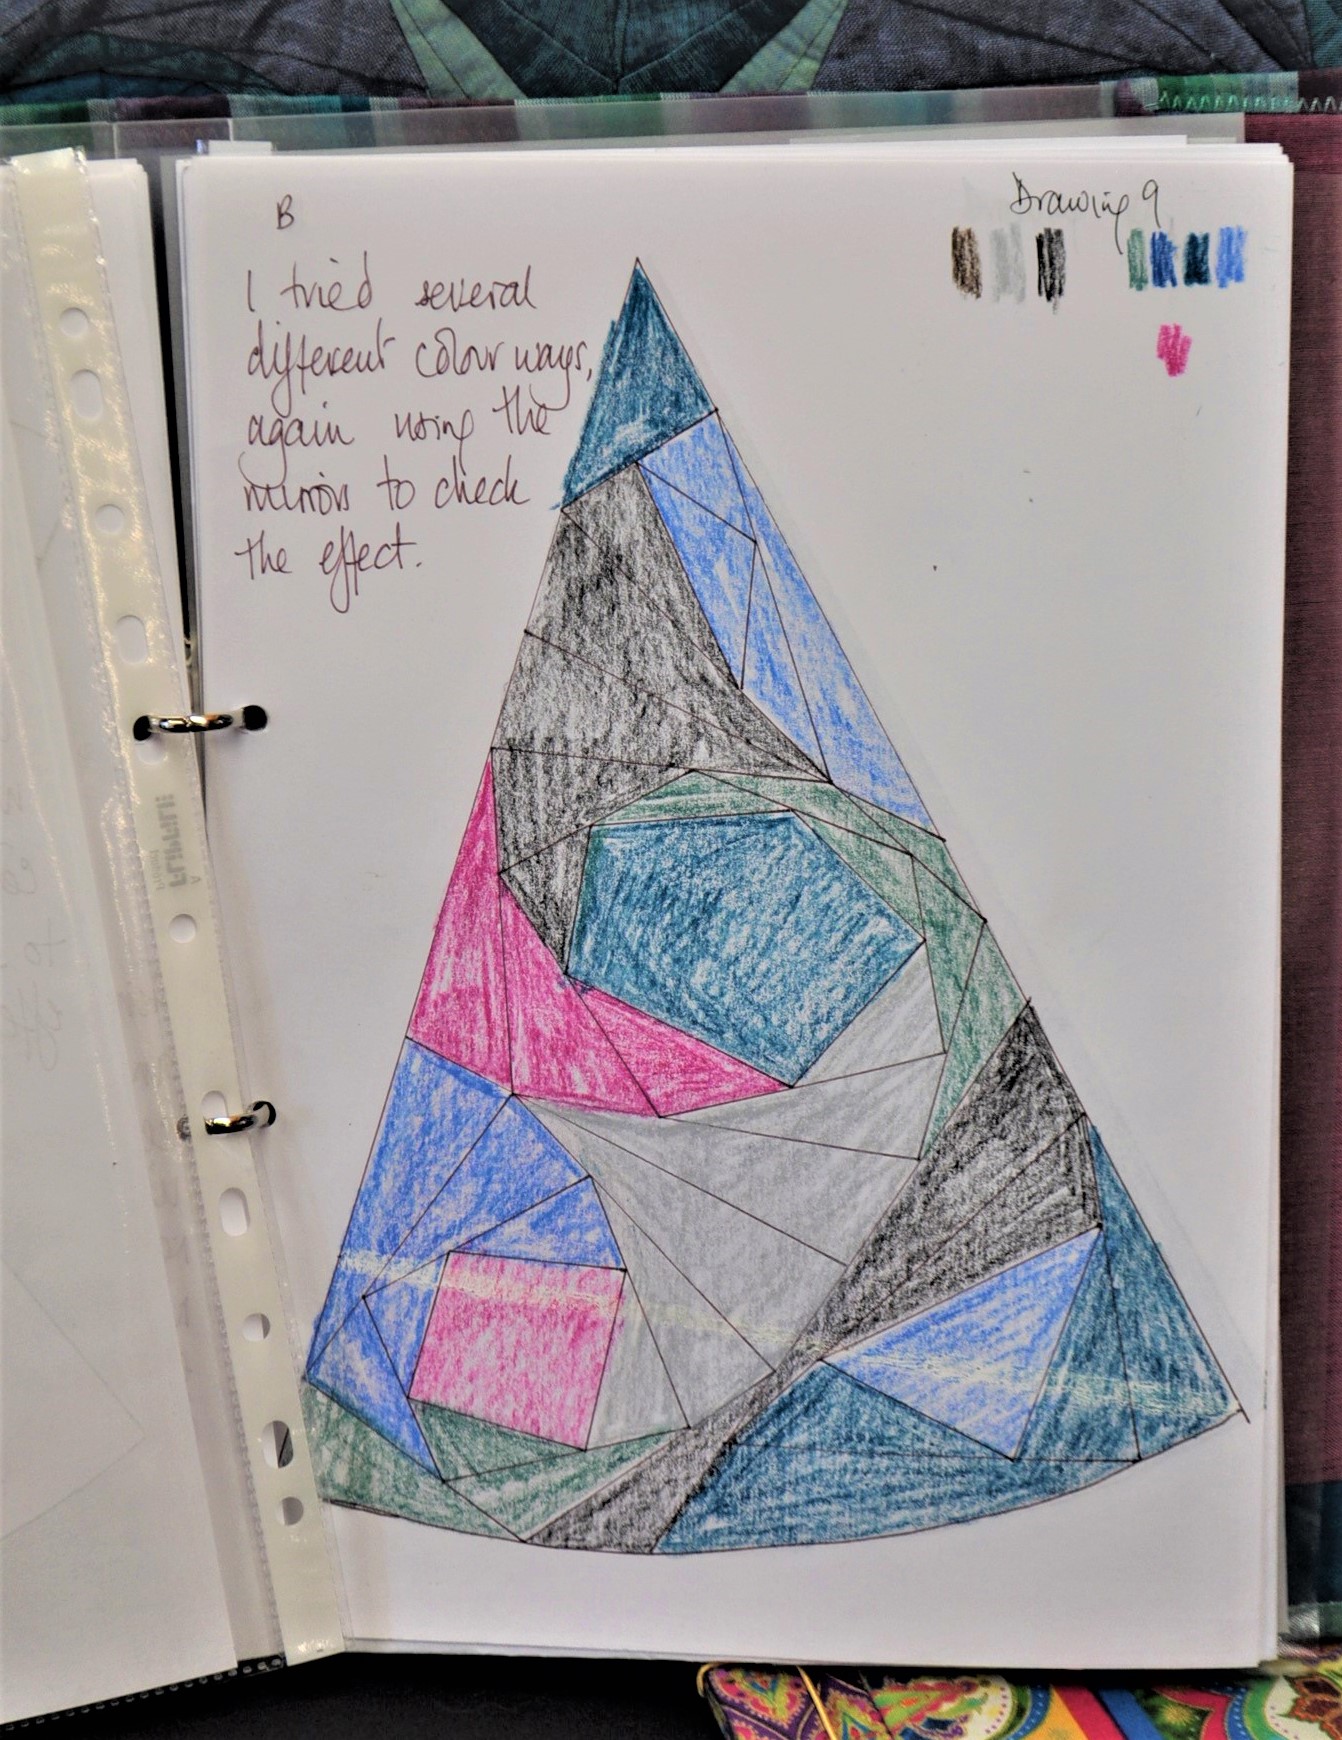 B
Drawing 9
I tried several
different colour ways,
again using the
mirrors to check
the effect.